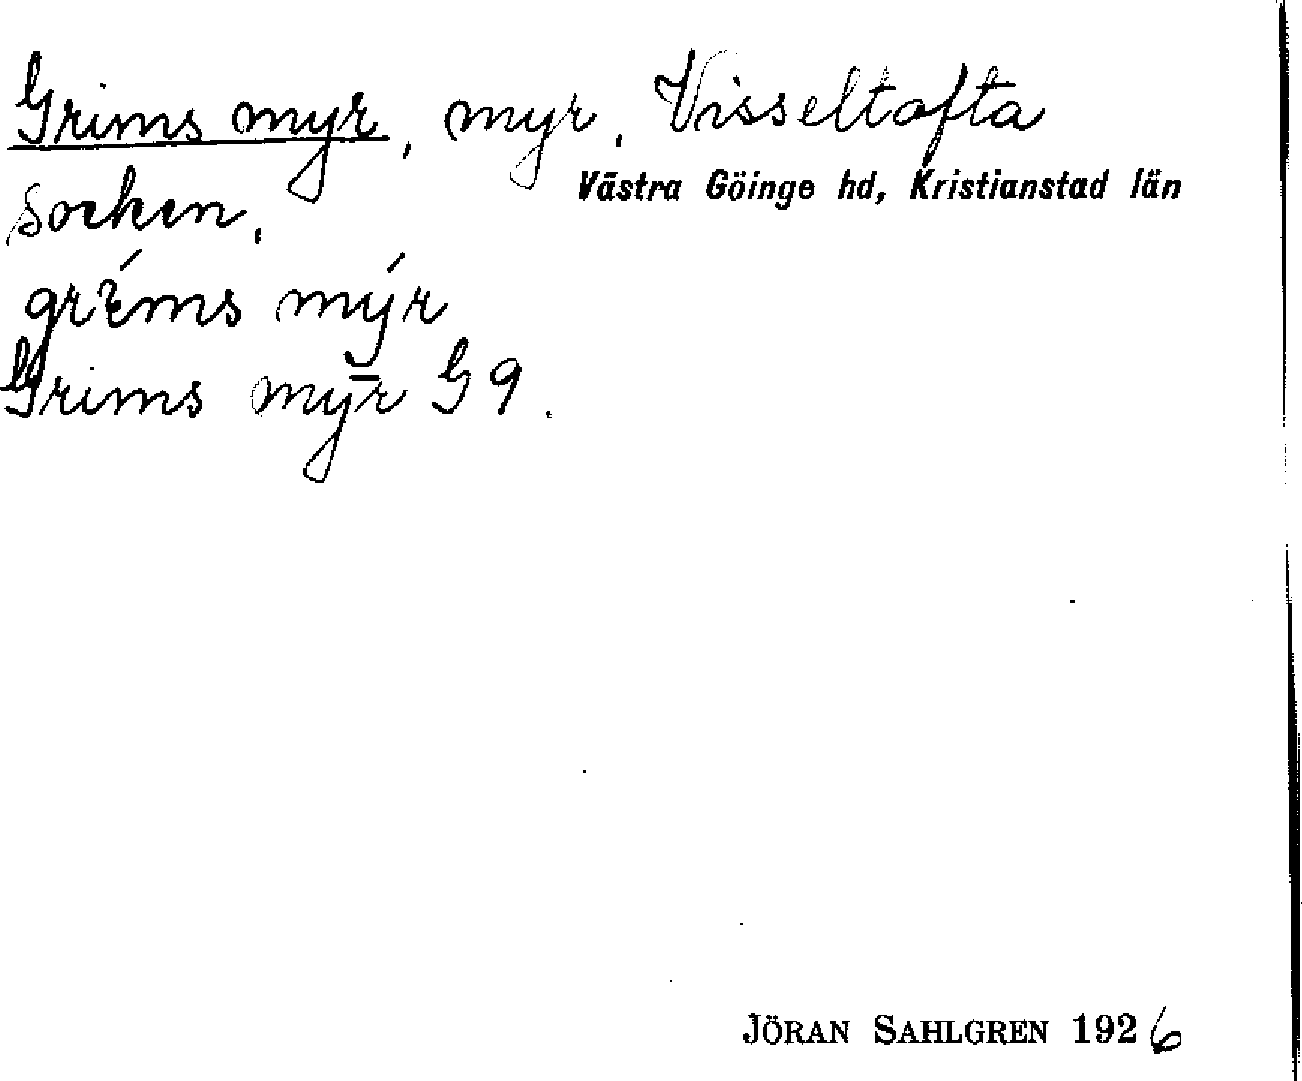 Grims myr, myr. Visseltofta
Västra Göinge hd, Kristianstad län
socken.
mýr
Grims myr G 9.
JÖRAN SAHLGREN 1926